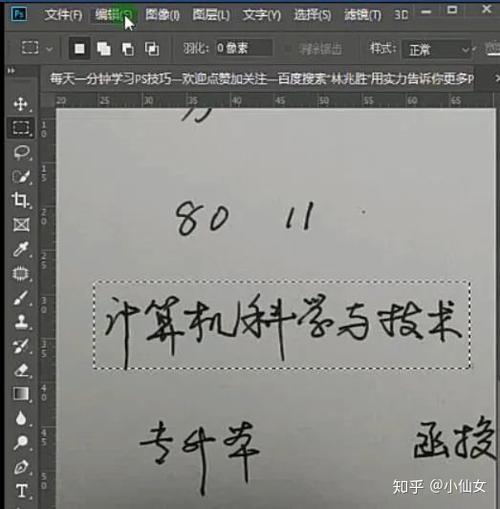 Ps 文件(F) 编辑(E) 图像(I) 图层(L) 文字(Y) 选择(S) 滤镜(T) 3D
羽化: 0 像素 消除锯齿 样式: 正常
每天一分钟学习PS技巧—欢迎点赞加关注—百度搜索"林兆胜"用实力告诉你更多P
20 25 30 35 40 45 50 55 60 65
80 11
计算机科学与技术
专升本 函授
知乎 @小仙女